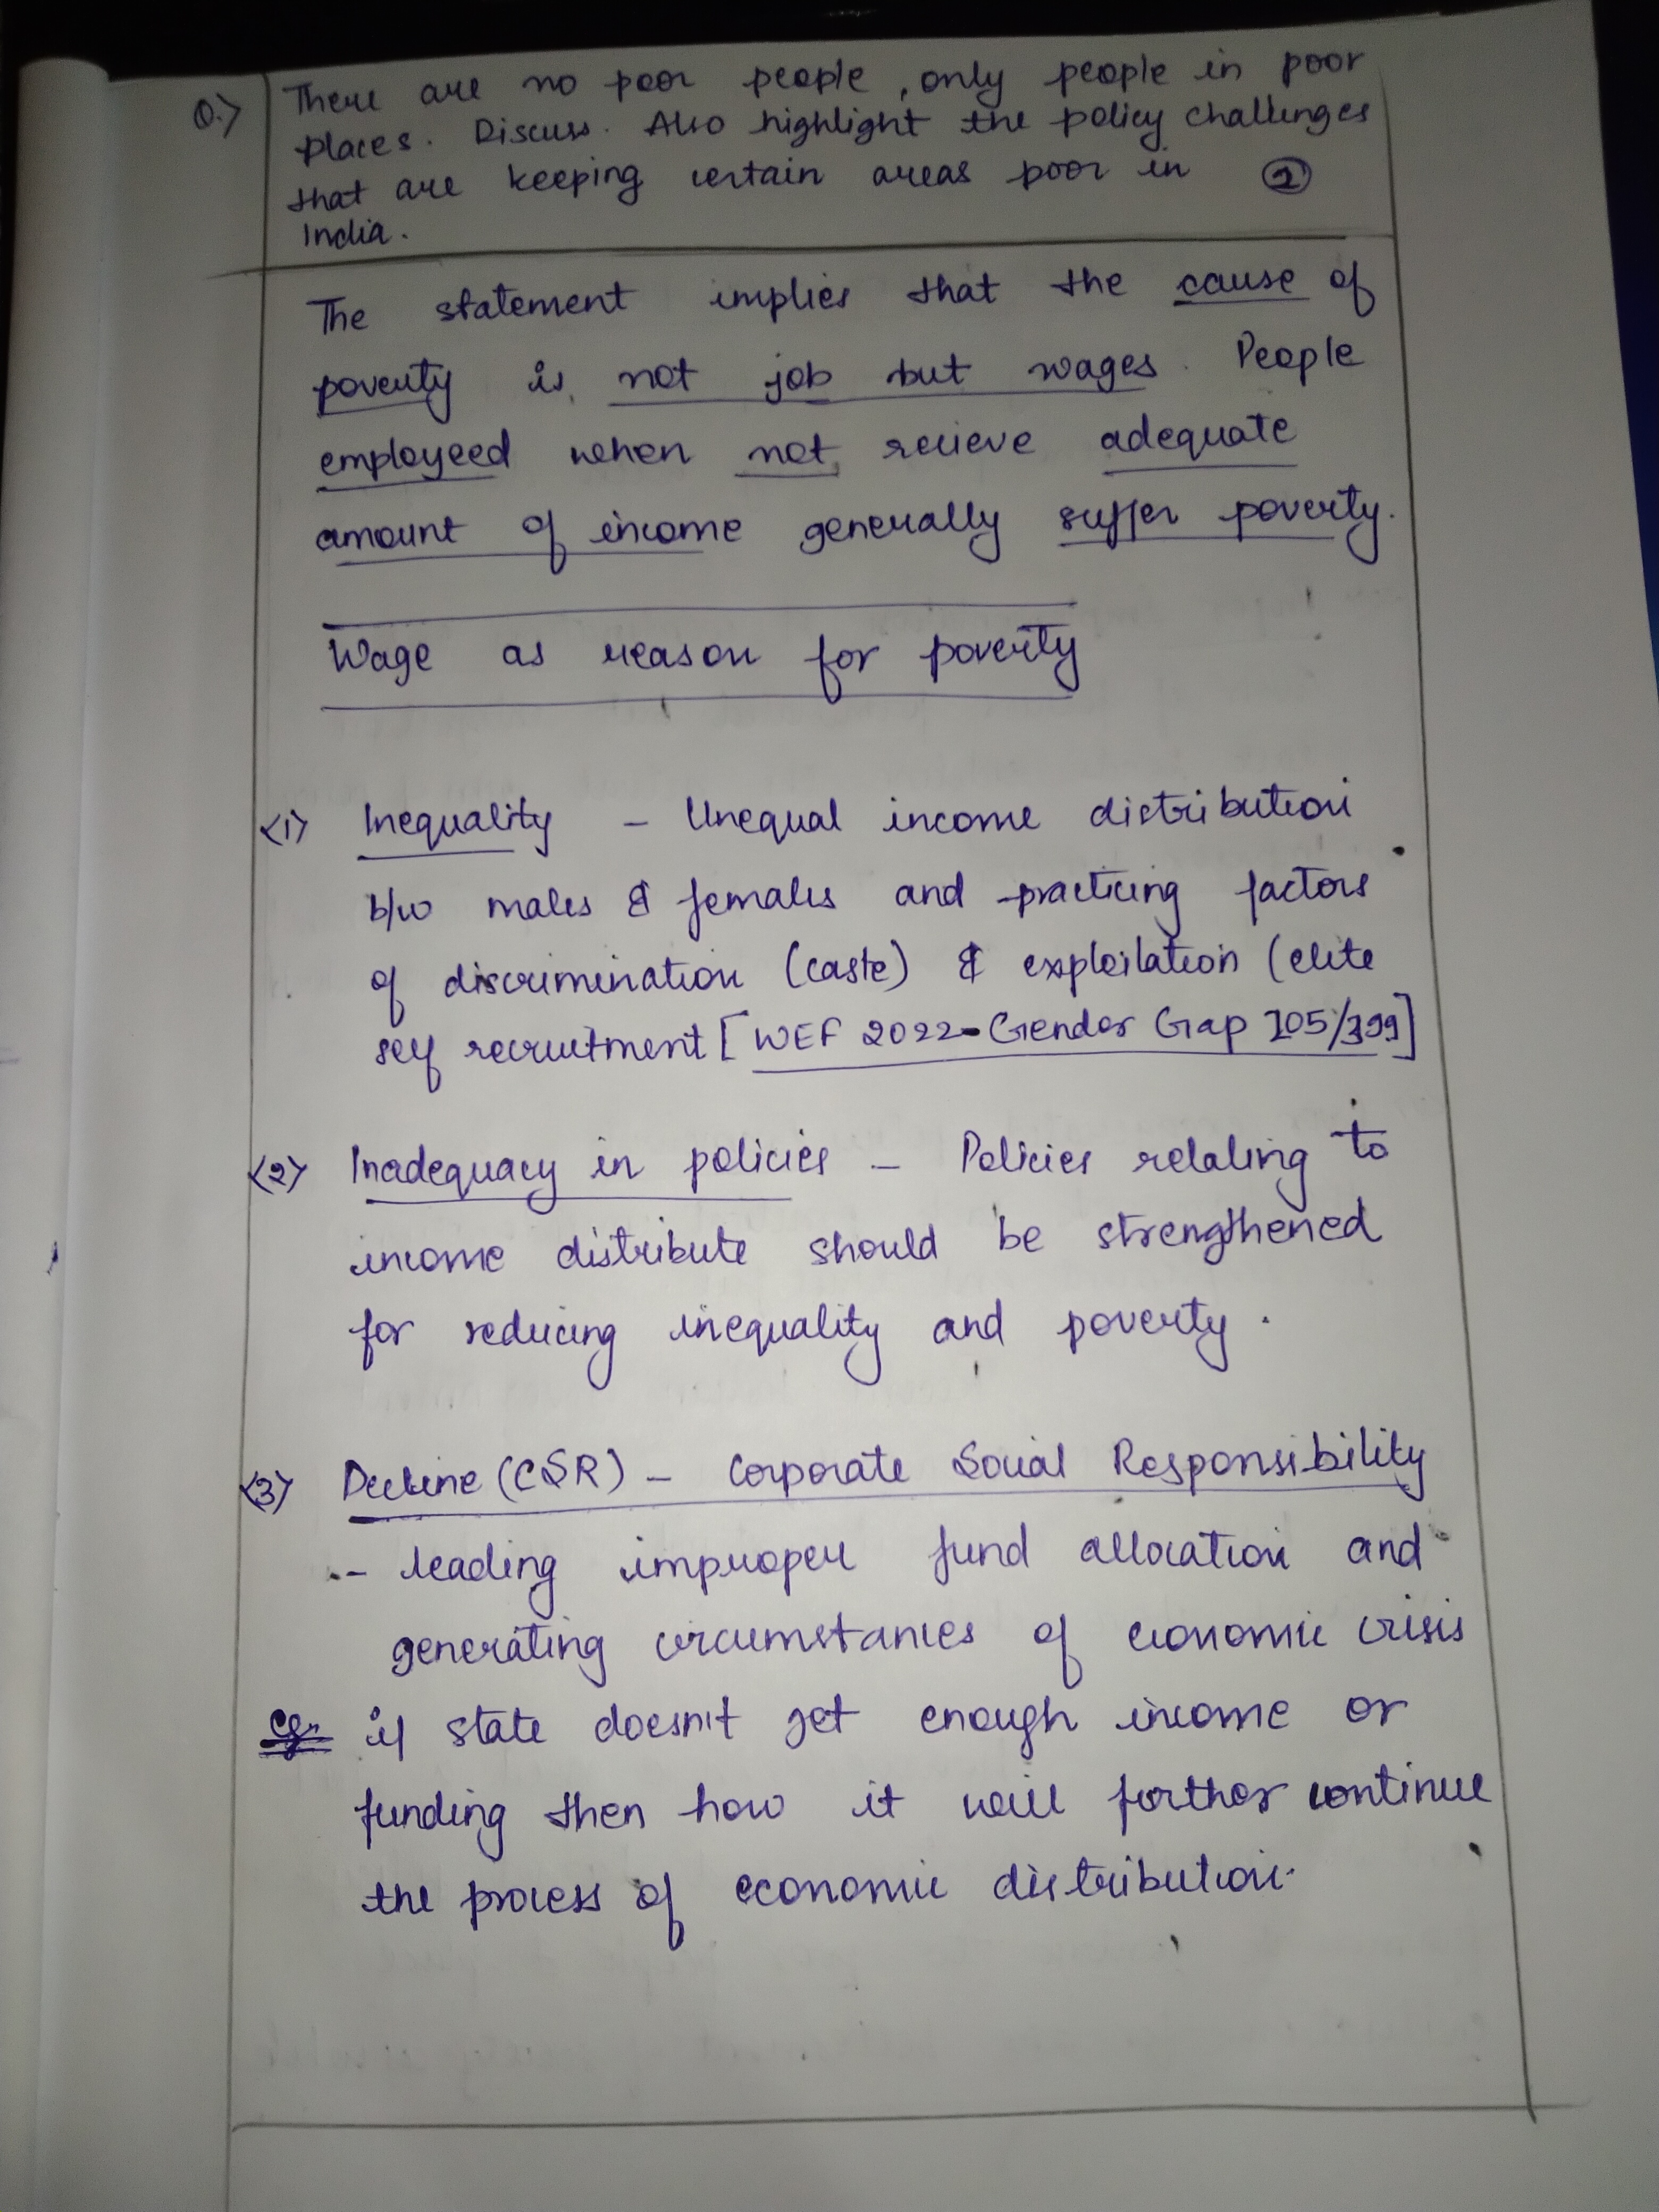 Q.> There are no poor people, only people in poor
places. Discuss. Also highlight the policy challenges
that are keeping certain areas poor in ①
India.
The statement implies that the cause of
poverty is not job but wages. People
employeed when not recieve adequate
amount of income generally suffer poverty.
Wage as reason for poverty
<1> Inequality - Unequal income distribution
b/w males & females and practicing factors
of discrimination (caste) & exploilation (elite
self recruitment [WEF 2022-Gender Gap 105/199]
<2> Inadequacy in policies - Policies relating to
income distribute should be strengthened
for reducing inequality and poverty.
<3> Decline (CSR) - Corporate Social Responsibility
- leading improper fund allocation and
generating circumstances of economic crisis
eg. if state doesn't get enough income or
funding then how it will further continue
the process of economic distribution.